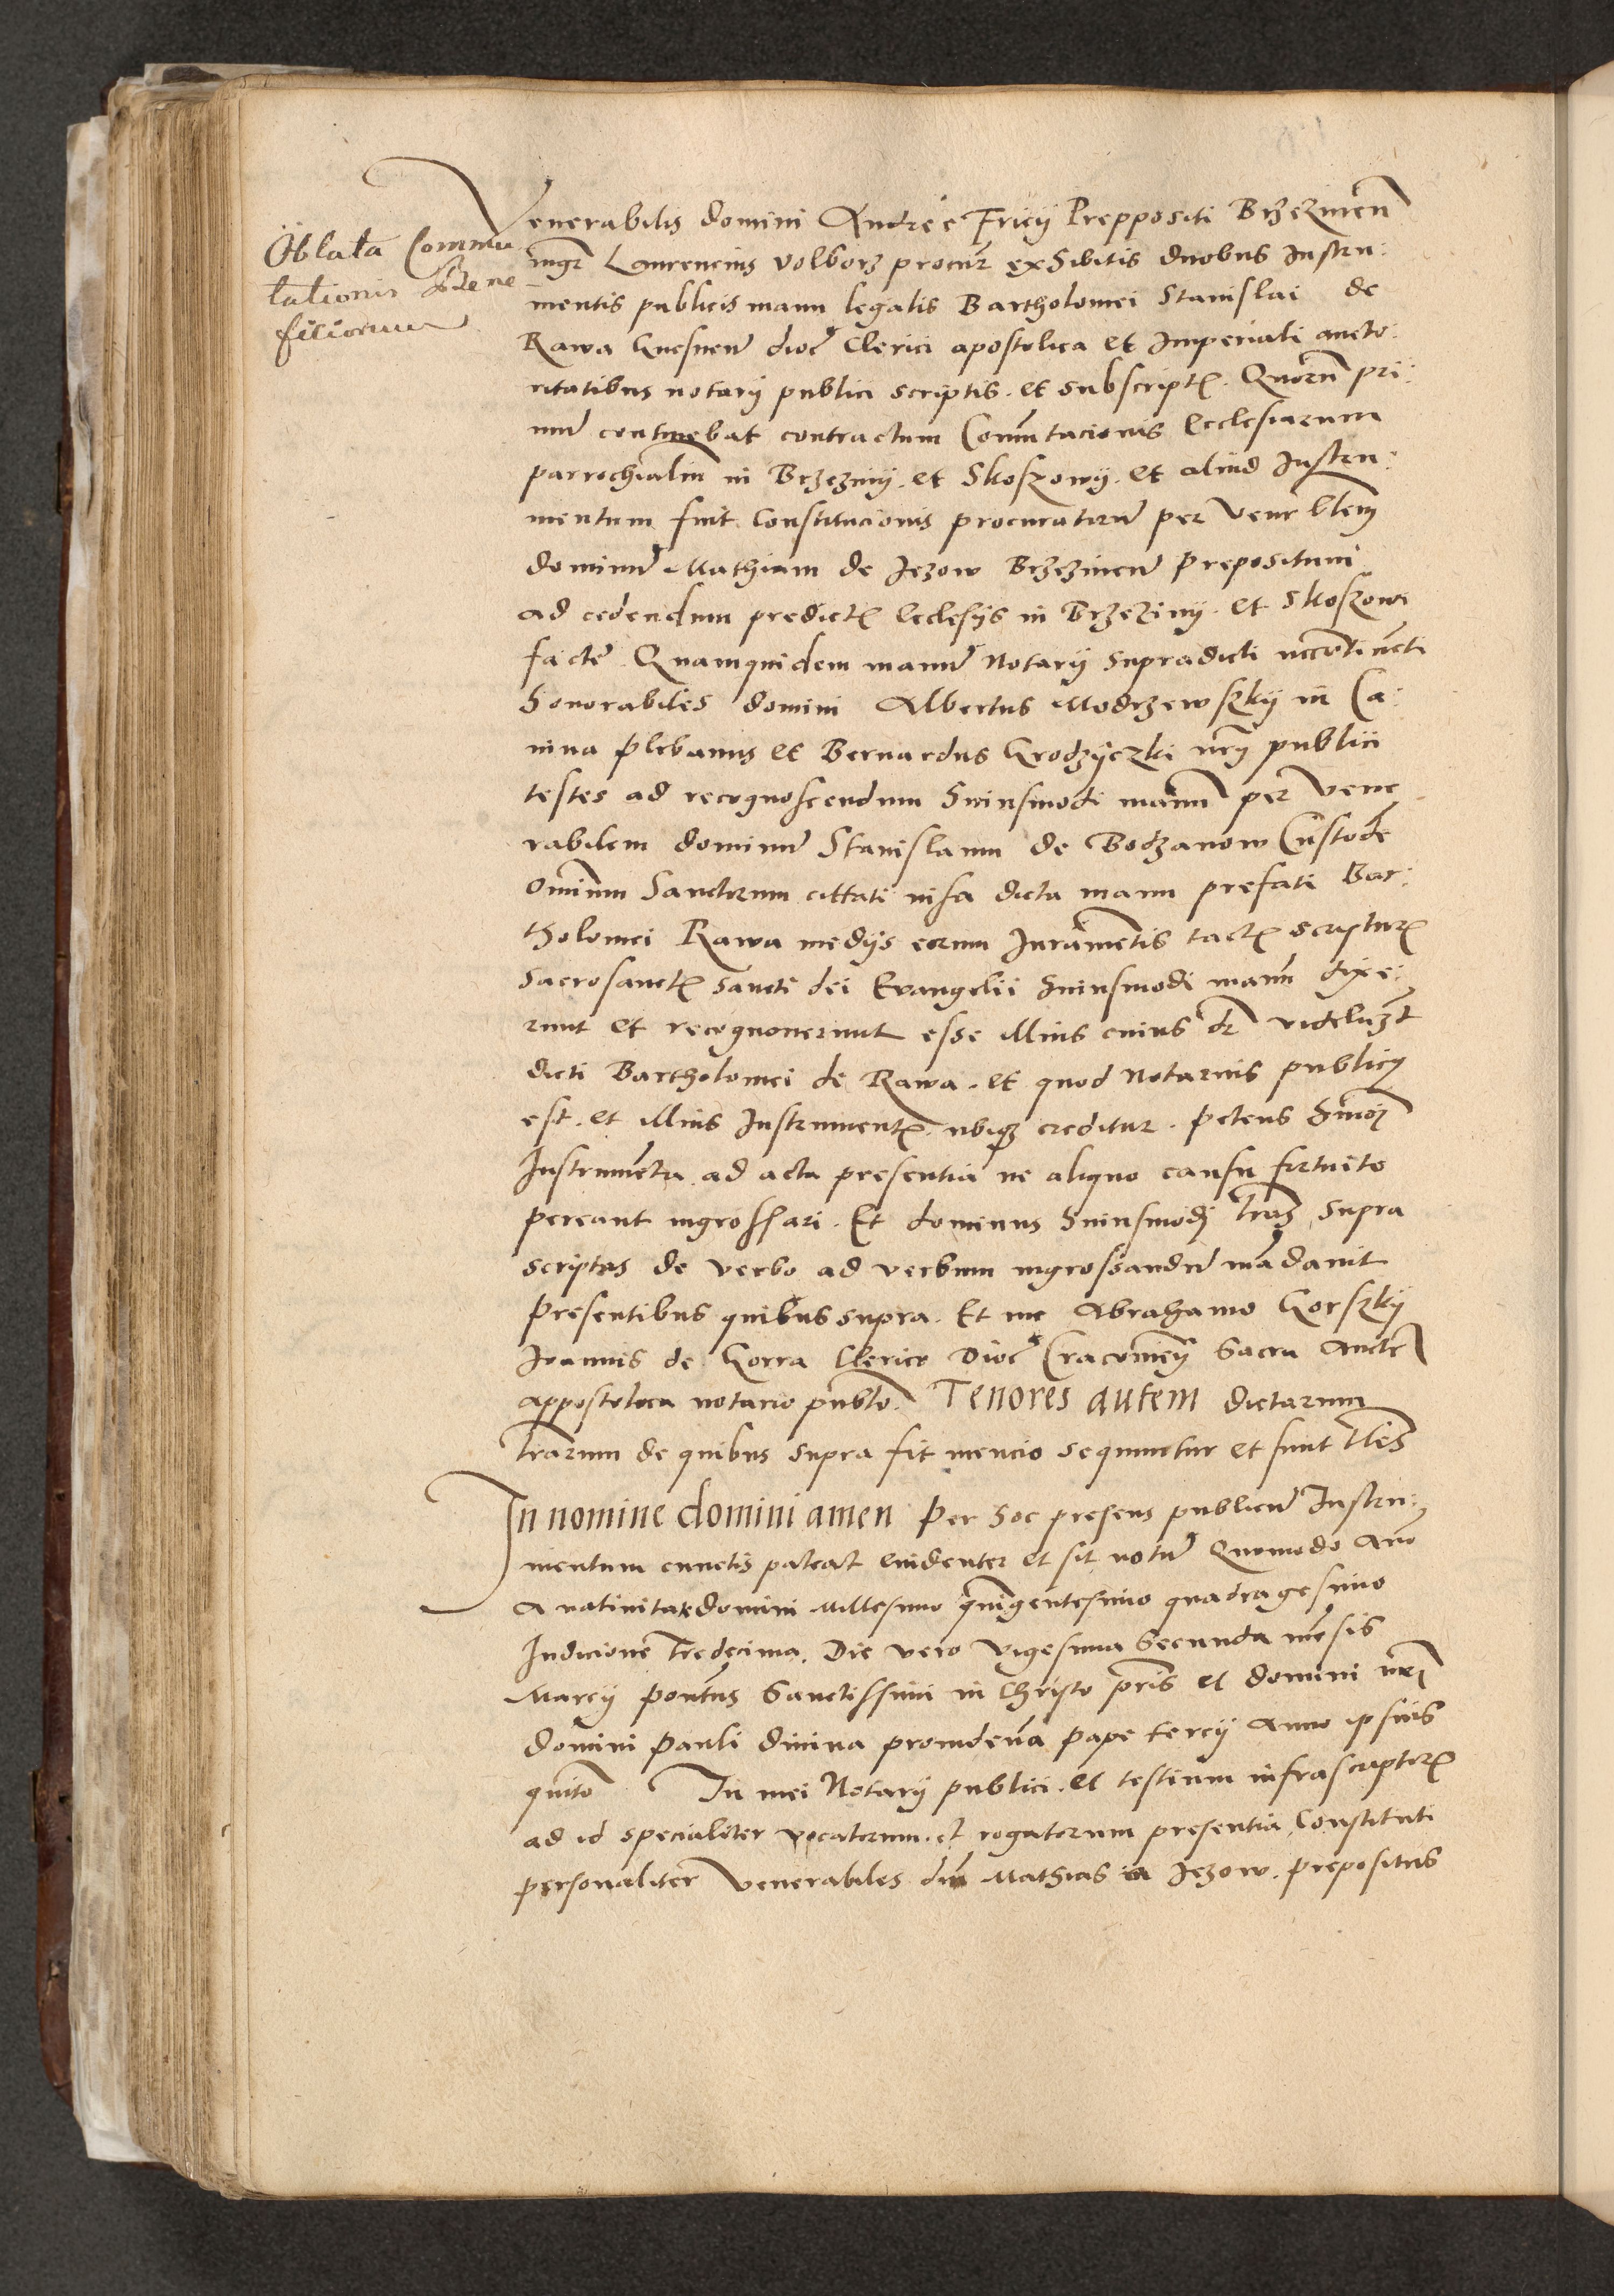 Oblata Commu
tationis Bene
ficiorum
Venerabilis domini Andreę Fricij Preppositi Brzezinen
mgr Laurencius Volborz procur exhibitis duobus Instru:
mentis publicis manu legalis Bartholomei Stanislai de
Rawa Gnesnen dioc Clerici apostolica et Imperiali aucto:
ritatibus notarij publici scriptis. et subscript. Quoru pri:
mu continebat contractum Comutacionis Ecclesiarum
parrochialiu in Brzeziny. et Skoszowy. et aliud Instru:
mentum fuit Constitucionis procuratoru per Venerblem
dominu Mathiam de Jezow Brzezinen Prepositum
ad cedendum predict Ecclesijs in Brzeziny. et Skoszowi
facte. Quamquidem manu Notarij supradicti
Honorabiles domini Albertus Modrzewszky in Ca:
nina Plebanus et Bernardus Grodzyczki nrij publici
testes ad recognoscendum huiusmodi manu per Vene
rabilem dominu Stanislaum de Bodzanow Custode
Omnium Sanctorum cittati visa dicta manu prefati Bar:
tholomei Rawa medijs eorum Juramentis tact scriptur
sacrosanct sancti dei Evangelii huiusmodi manu dixe:
runt et recognouerunt esse illius cuius dr videlicet
dicti Bartholomei de Rawa. et quod Notarius publicus
est. et illius Instrument ubiqz creditur. Petens hmoi
Instrumenta ad acta presentia ne aliquo causu fortuito
pereant ingrossari. Et dominus huiusmodi lras supra
scriptas de verbo ad verbum ingrossandu madauit
presentibus quibus supra. Et me Abrahamo Gorszky
Joannis de Gorra Clerico Dioc Cracouien Sacra Aucte
appostolica notario publo. Tenores autem dictarum
lrarum de quibus supra fit mencio sequuntur et sunt tles
In nomine domini amen Per hoc presens publicu Instru:
mentum cunctis pateat euidenter et sit notu Quomodo Ano
A natiuitate domini Millesimo quingentesimo quadragesimo
Indicione tredecima. Die vero vigesima secunda mensis
Marcij Pontus Sanctissimi in Christo pris et domini nri
domini Pauli diuina prouidencia Pape tercij Anno ipsius
quito In mei Notarij publici. et testium infrascriptor
ad id specialiter vocatorum. et rogatorum presentia Constituti
personaliter Venerabiles dni Mathias a Jezow. Prepositus